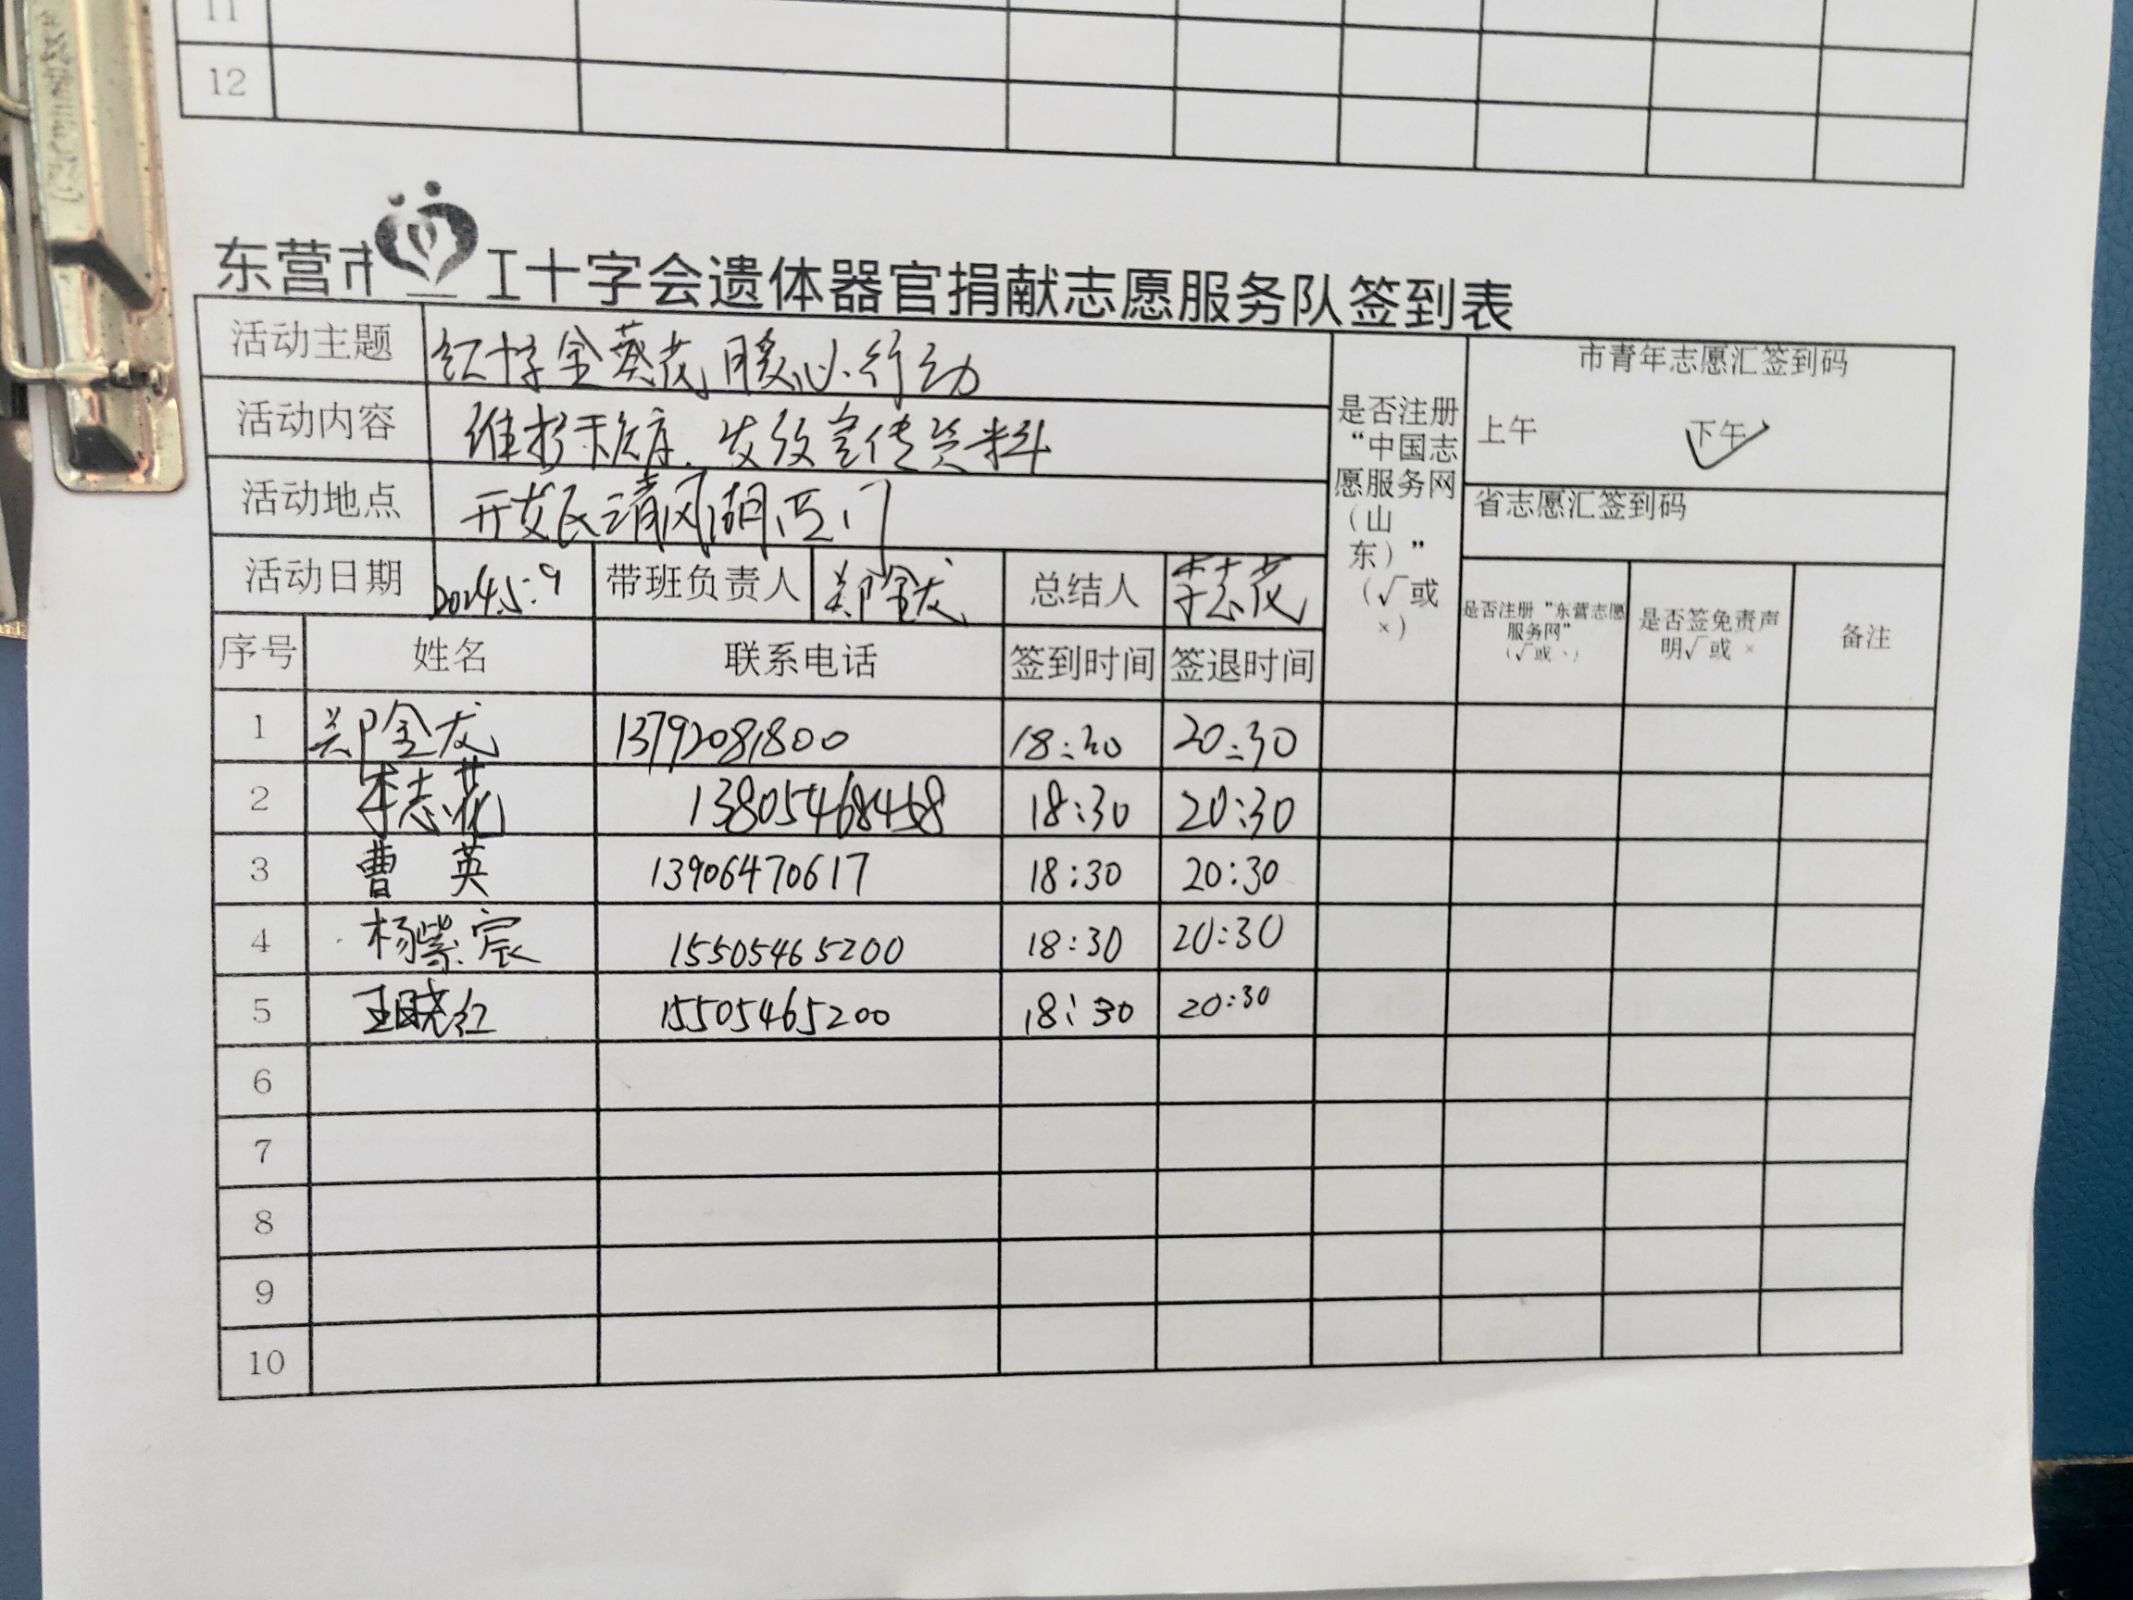 11
12
东营市 工十字会遗体器官捐献志愿服务队签到表
活动主题 红十字金葵花暖心行动
活动内容 维护秩序、发放宣传资料
活动地点 开发区清风湖西门
活动日期 2024.5.9 带班负责人 郑金龙 总结人 李志花
是否注册
“中国志
愿服务网
(山
东)”
(√或
×)
市青年志愿汇签到码
上午 下午
省志愿汇签到码
是否注册“东营志愿
服务网”
(√或 、)
是否签免责声
明√或 ×
备注
序号 姓名 联系电话 签到时间 签退时间
1 郑金龙 13792081800 18:30 20:30
2 李志花 13805468458 18:30 20:30
3 曹英 13906470617 18:30 20:30
4 杨紫宸 15505465200 18:30 20:30
5 王晓红 15505465200 18:30 20:30
6
7
8
9
10